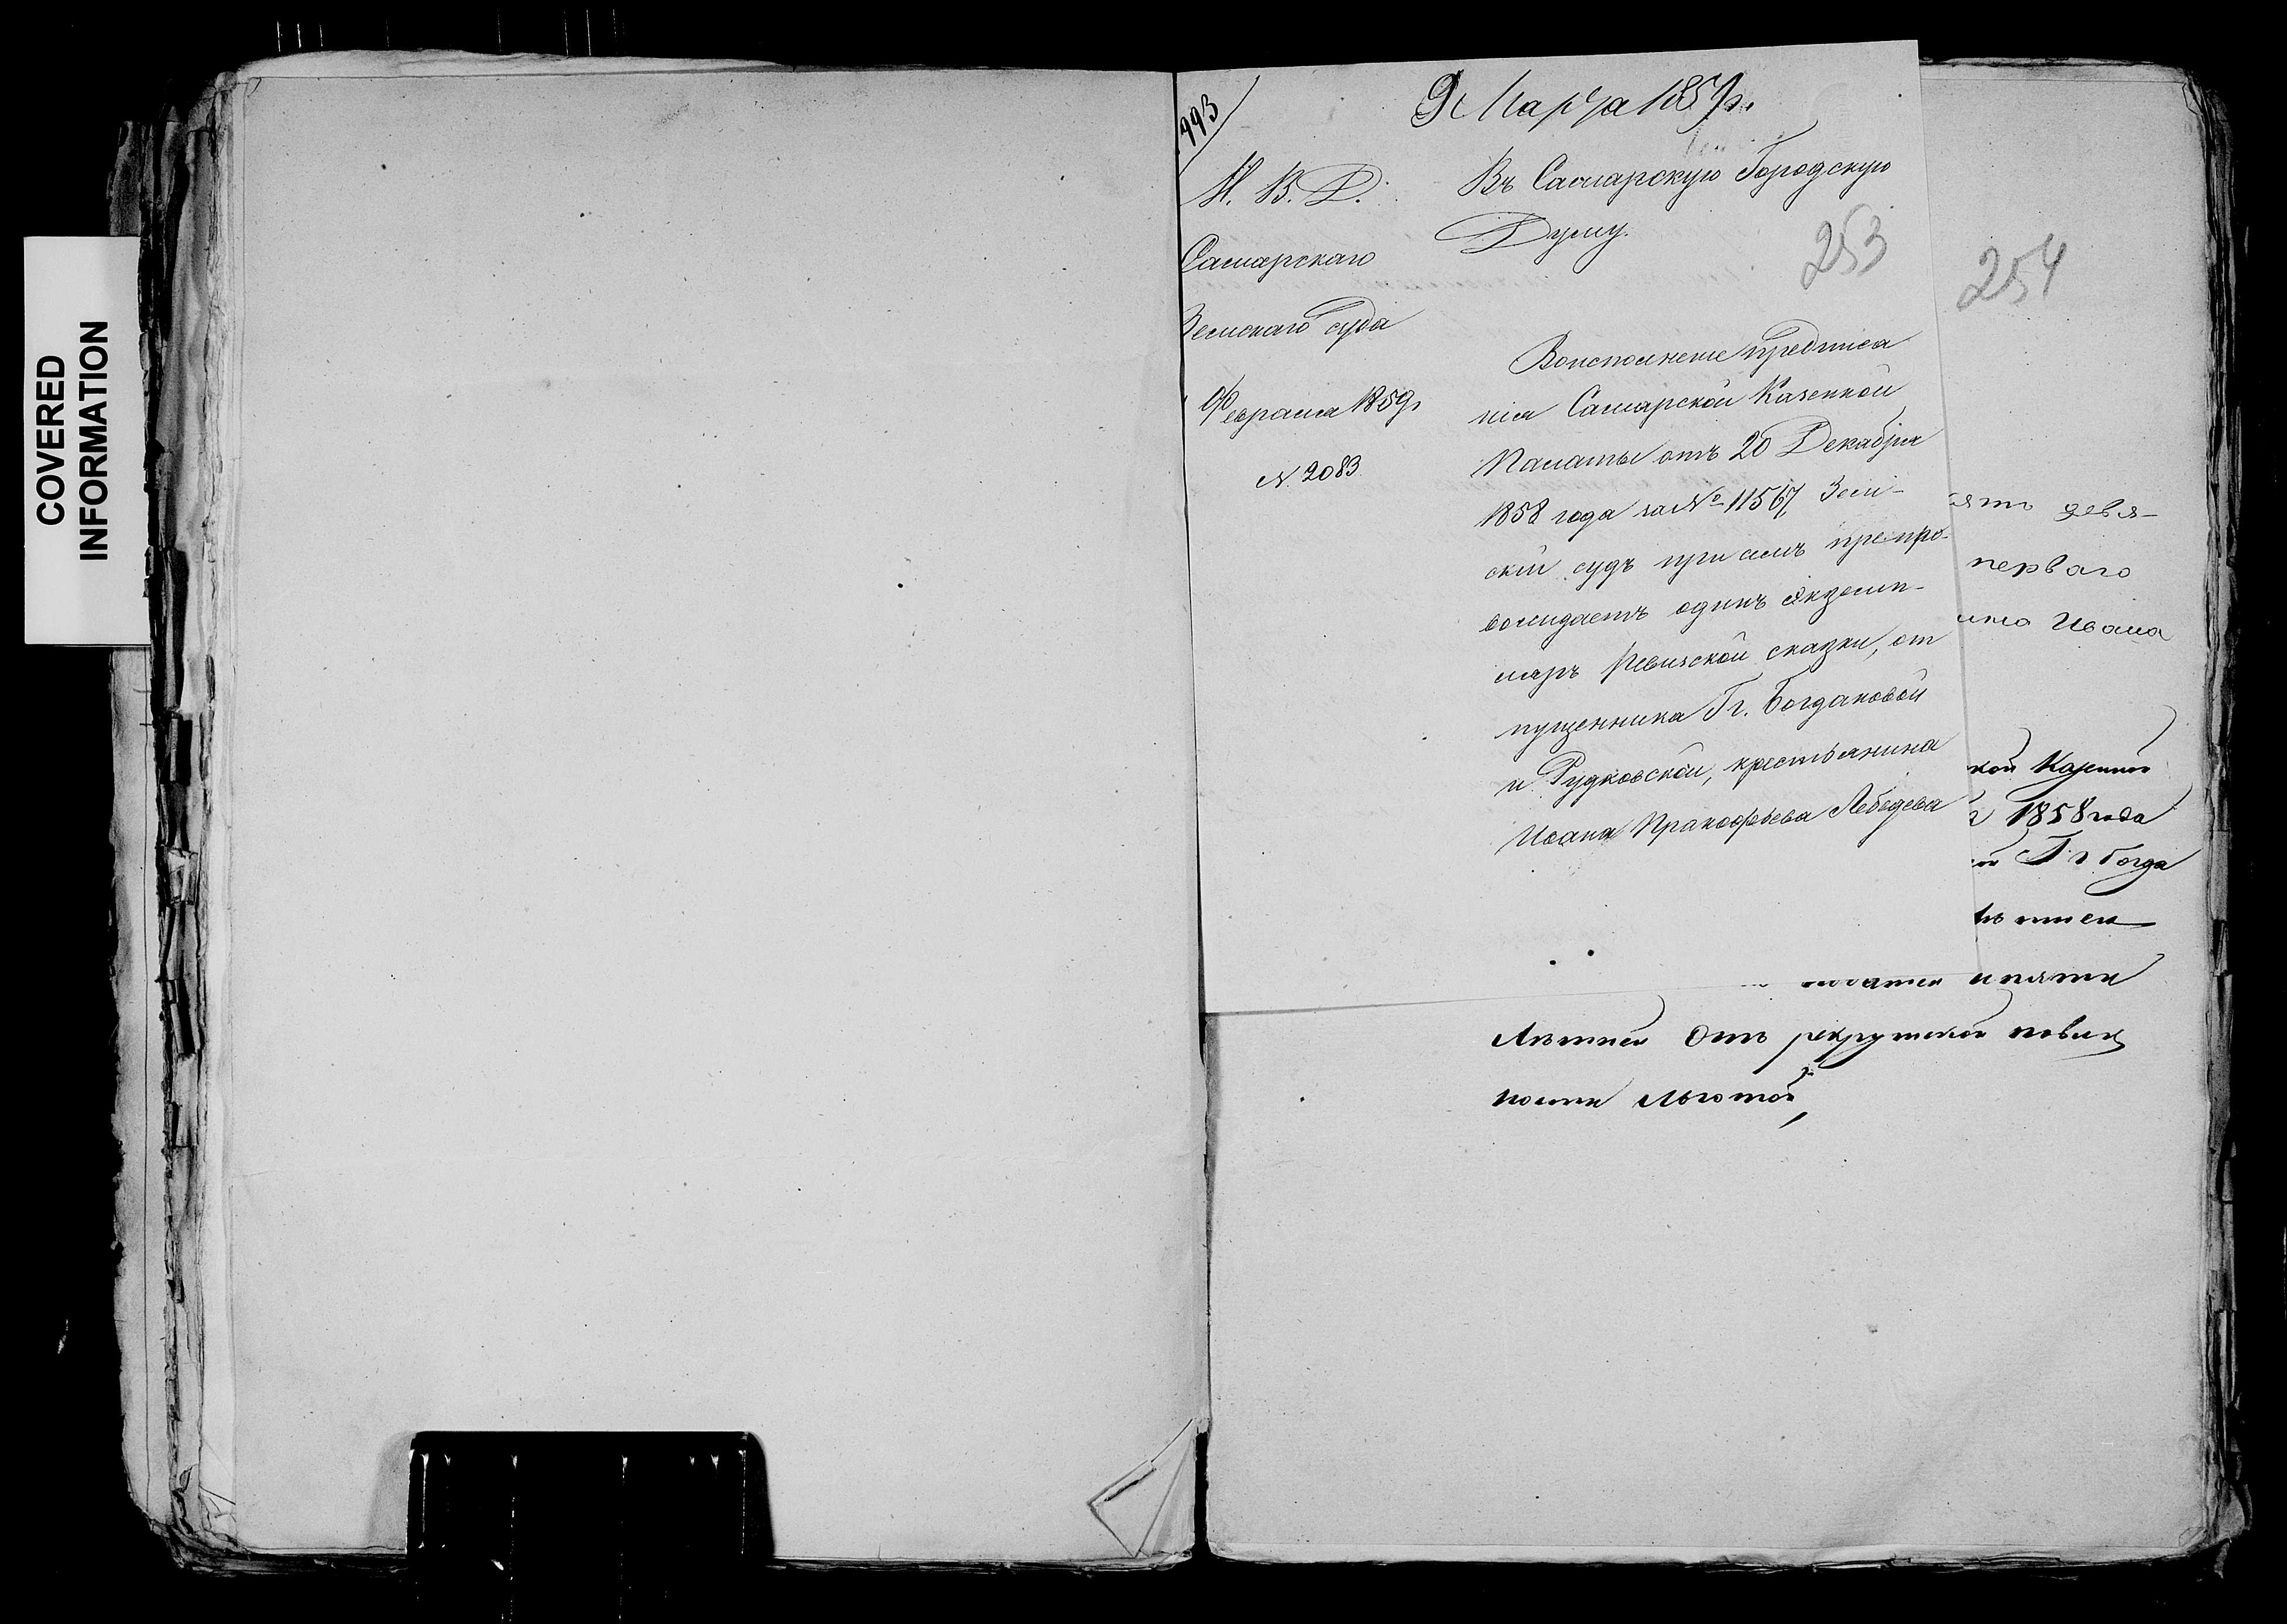 COVERED
INFORMATION
993
9 Марта 1859 г.
М. В. Д.
Самарскаго
Земскаго суда
Февраля 1859 г.
№ 2083
Въ Самарскую Городскую
Думу.
253
254
Воисполнение предписа
ния Самарской Казенной
Палаты отъ 20 Декабря
1858 года за № 11567, Зем-
ский судъ при семъ препро-
вождаетъ одинъ экземп-
ляръ Ревизской сказки, от
пущенника Гг. Богдановой
и Рудковской, крестьянина
Ивана Пракофьева Лебедева
ять девя-
перваго
Ивана
кой Казенной
1858 года
Гг Богда
Лѣтней Отъ рекрутской повин
ности льготой,